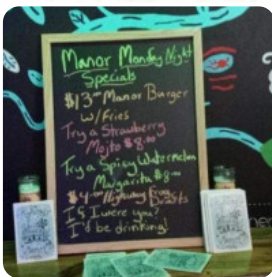 Manor Monday Night
Specials
$13.00 Manor Burger
w/Fries
Try a Strawberry
Mojito $8.00
Try a Spicy Watermelon
Margarita $8.00
$4.00
If I were you?
I'd be drinking!